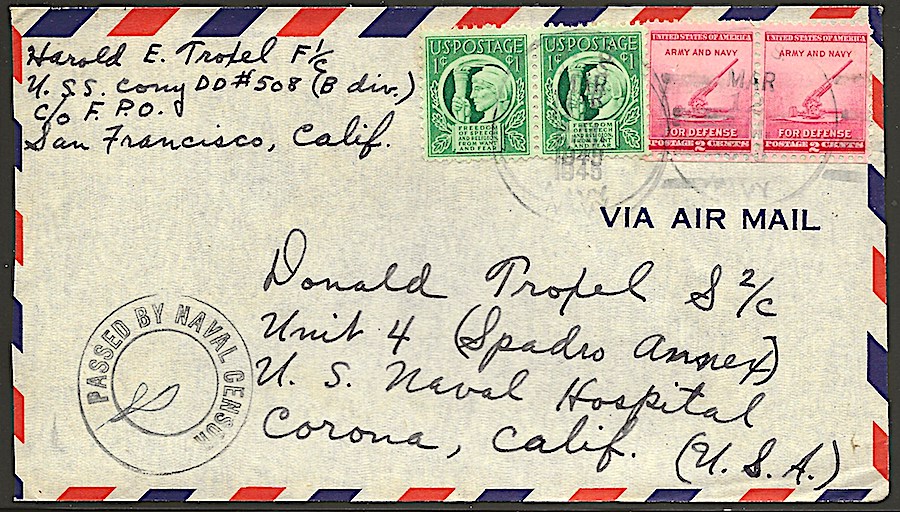 Harold E. Tropel F 1/c
U. S. S. Cony DD#508 (B div.)
c/o F. P. O.
San Francisco, Calif.
US POSTAGE
1¢ ¢1
FREEDOM
OF SPEECH
AND RELIGION,
FROM WANT
AND FEAR
US POSTAGE
1¢ ¢1
FREEDOM
OF SPEECH
AND RELIGION,
FROM WANT
AND FEAR
UNITED STATES OF AMERICA
ARMY AND NAVY
FOR DEFENSE
POSTAGE 2 CENTS
UNITED STATES OF AMERICA
ARMY AND NAVY
FOR DEFENSE
POSTAGE 2 CENTS
MAR
1945
NAVY
MAR
VIA AIR MAIL
Donald Tropel S 2/c
Unit 4 (Spadro Annex)
U. S. Naval Hospital
Corona, Calif. (U. S. A.)
PASSED BY NAVAL CENSOR